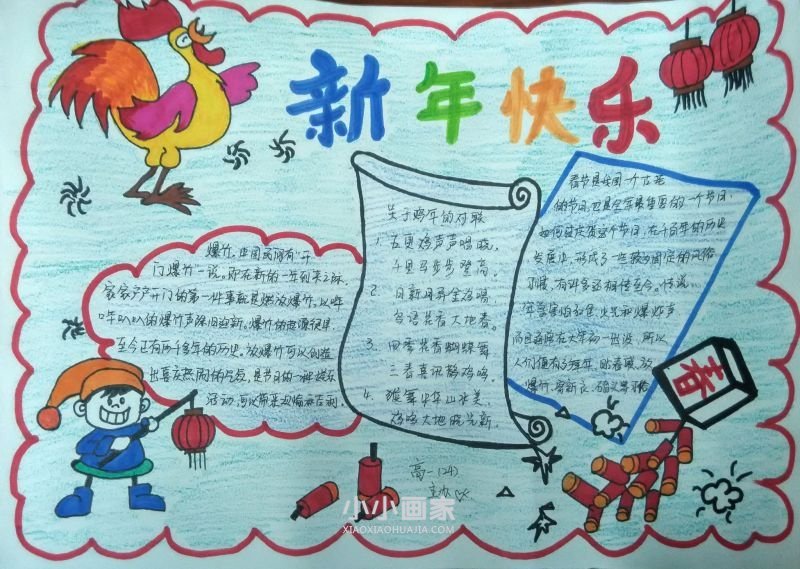 新年快乐
爆竹，中国民间有"开
门爆竹"一说。即在新的一年到来之际，
家家户户开门的第一件事就是燃放爆竹，以哔
哔叭叭的爆竹声除旧迎新。爆竹的起源很早，
至今已有两千多年的历史。放爆竹可以创造
出喜庆热闹的气氛，是节日的一种娱乐
活动，可以带来欢愉和吉利。
关于鸡年的对联
1. 五更鸡声声唱晓，
千里马步步登高。
2. 日新月异金鸡唱
鸟语花香大地春。
3. 四季花香蝴蝶舞
三春喜讯静鸡鸣。
4. 猴年山水美，
鸡鸣大地晓光新。
春节是我国一个古老
的节日，也是全年最重要的一个节日，
如何庆贺这个节日，在千百年的历史
发展中，形成了一些较为固定的风俗
习惯，有许多还相传至今。传说，
年兽害怕红色、火光和爆炸声
而且通常在大年初一出没，所以
人们便有了拜年、贴春联、放
爆竹
春
高一(24)
小小画家
XIAOXIAOHUAJIA.COM